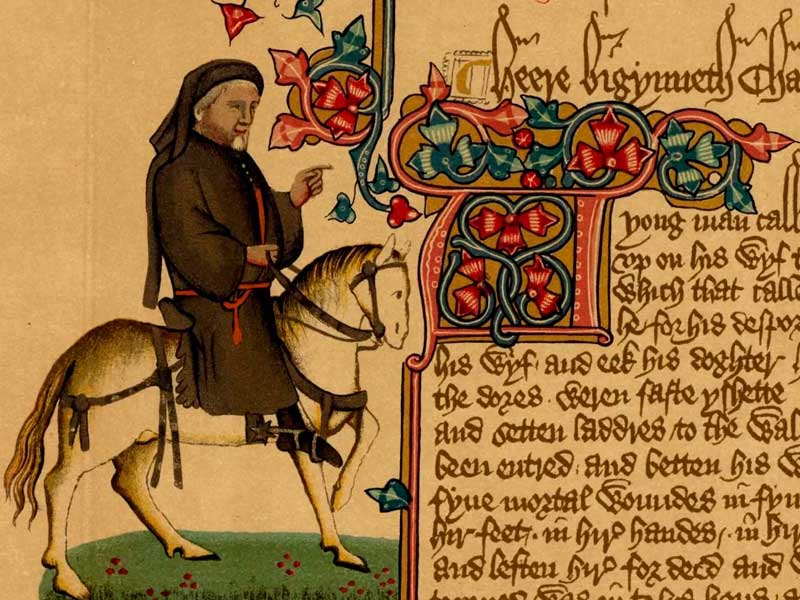 Heere bigynneth Cha
A yong man call
vp on his Wyf t
Which that calle
he for his despor
his Wyf and eek his doghter h
the dores weren faste yshette
and setten laddres to the Wal
been entred and betten his W
fyue mortal Woundes in fyu
hir feet in hir handes in hir
and leften hir for deed and W